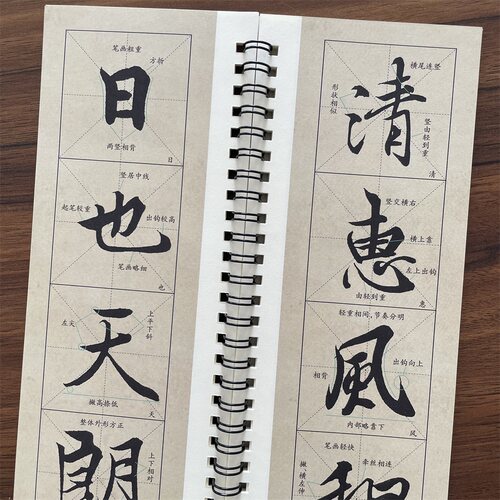 笔画粗重
方折
日
两竖相背
日
竖居中线
起笔较重
出钩较高
也
笔画略细
也
上平下斜
左尖
天
撇高捺低
天
整体外形方正
上下相对
朗
横尾连竖
形状相似
清
竖由轻到重
清
竖交横右
横上靠
惠
左上出钩
由轻到重
惠
轻重相间,节奏分明
出钩向上
風
相背
内部略靠下
风
笔画轻快
牵丝相连
撇横左伸
和